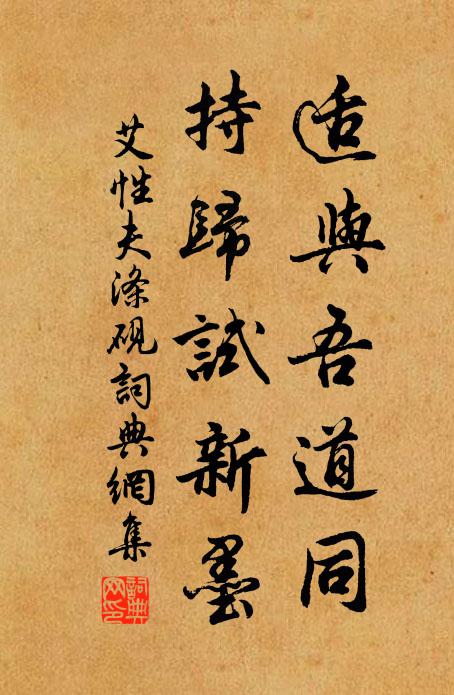 适與吾道同
持歸試新墨
艾性夫滌硯詞典網集
詞典
网印